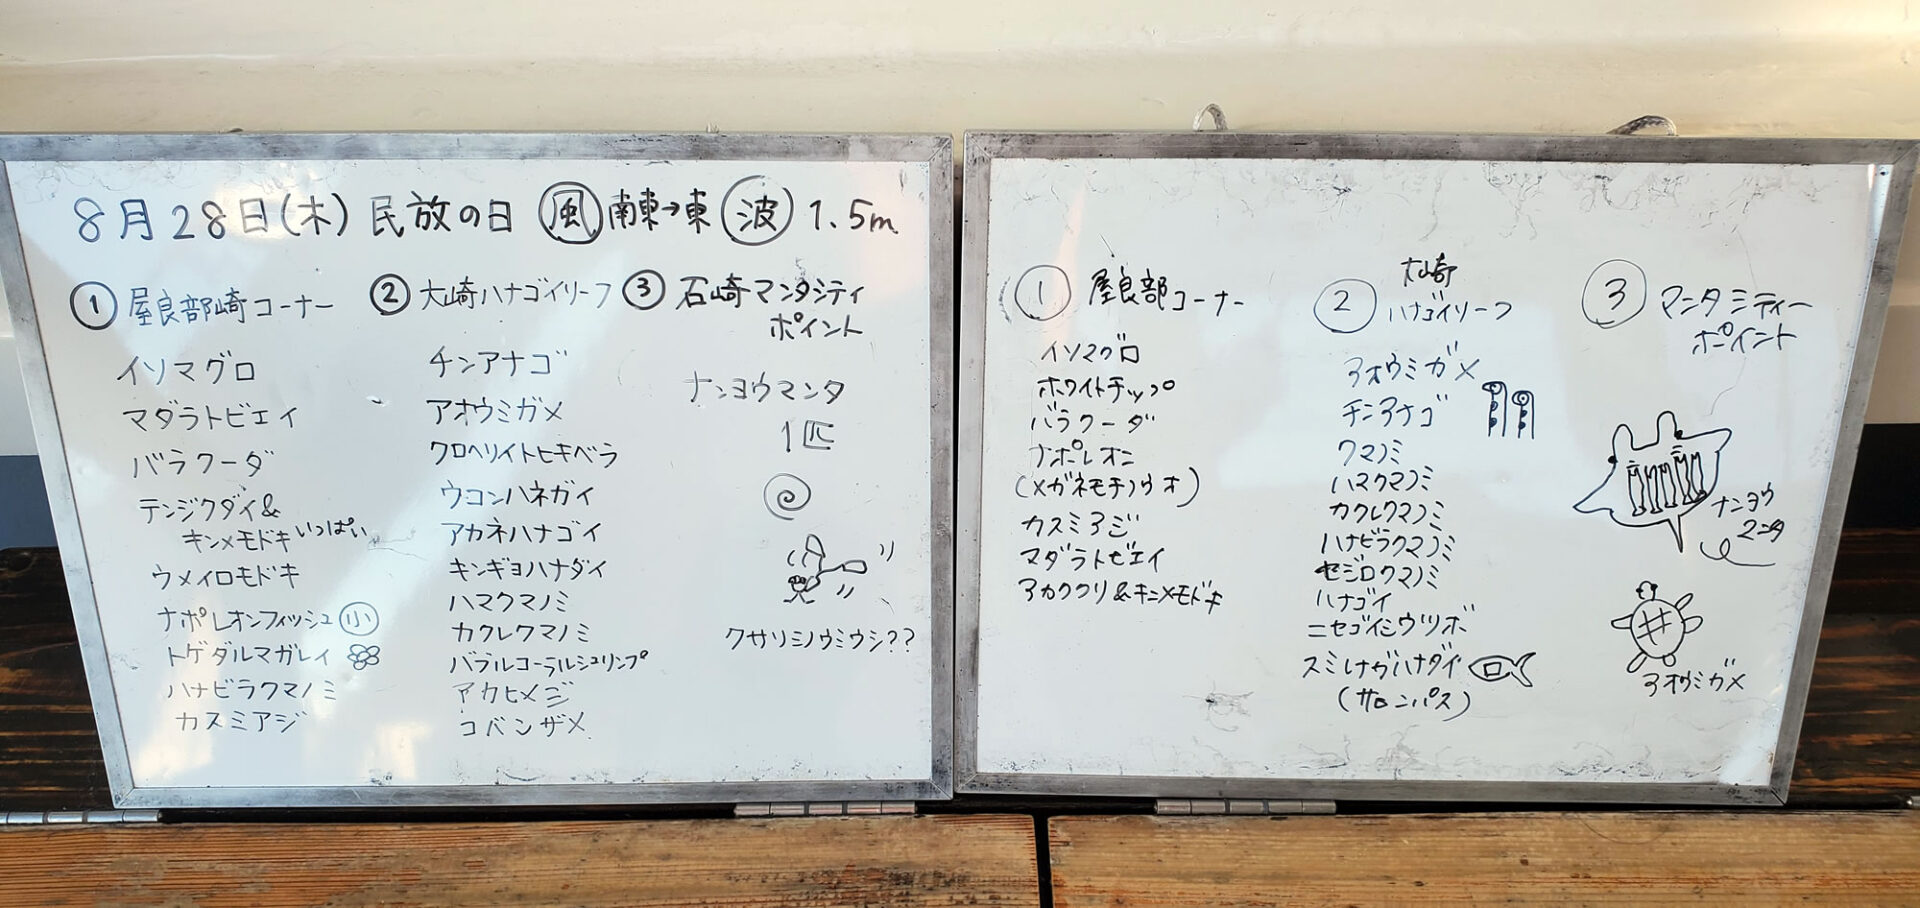 8月28日(木) 民放の日 風 南東→東 波 1.5m
① 屋良部崎コーナー
イソマグロ
マダラトビエイ
バラクーダ
テンジクダイ&
キンメモドキいっぱい
ウメイロモドキ
ナポレオンフィッシュ 小
トゲダルマガレイ
ハナビラクマノミ
カスミアジ
② 大崎ハナゴイリーフ
チンアナゴ
アオウミガメ
クロヘリイトヒキベラ
ウコンハネガイ
アカネハナゴイ
キンギョハナダイ
ハマクマノミ
カクレクマノミ
バブルコーラルシュリンプ
アカヒメジ
コバンザメ
③ 石崎マンタシティ
ポイント
ナンヨウマンタ
1匹
クサリミノウミウシ??
① 屋良部コーナー
イソマグロ
ホワイトチップ
バラクーダ
ナポレオン
(メガネモチノウオ)
カスミアジ
マダラトビエイ
アカククリ&キンメモドキ
② 大崎
ハナゴイリーフ
アオウミガメ
チンアナゴ
クマノミ
ハマクマノミ
カクレクマノミ
ハナビラクマノミ
セジロクマノミ
ハナゴイ
ニセゴイシウツボ
スミレナガハナダイ
(サロンパス)
③ マンタシティー
ポイント
ナンヨウ
マンタ
アオウミガメ